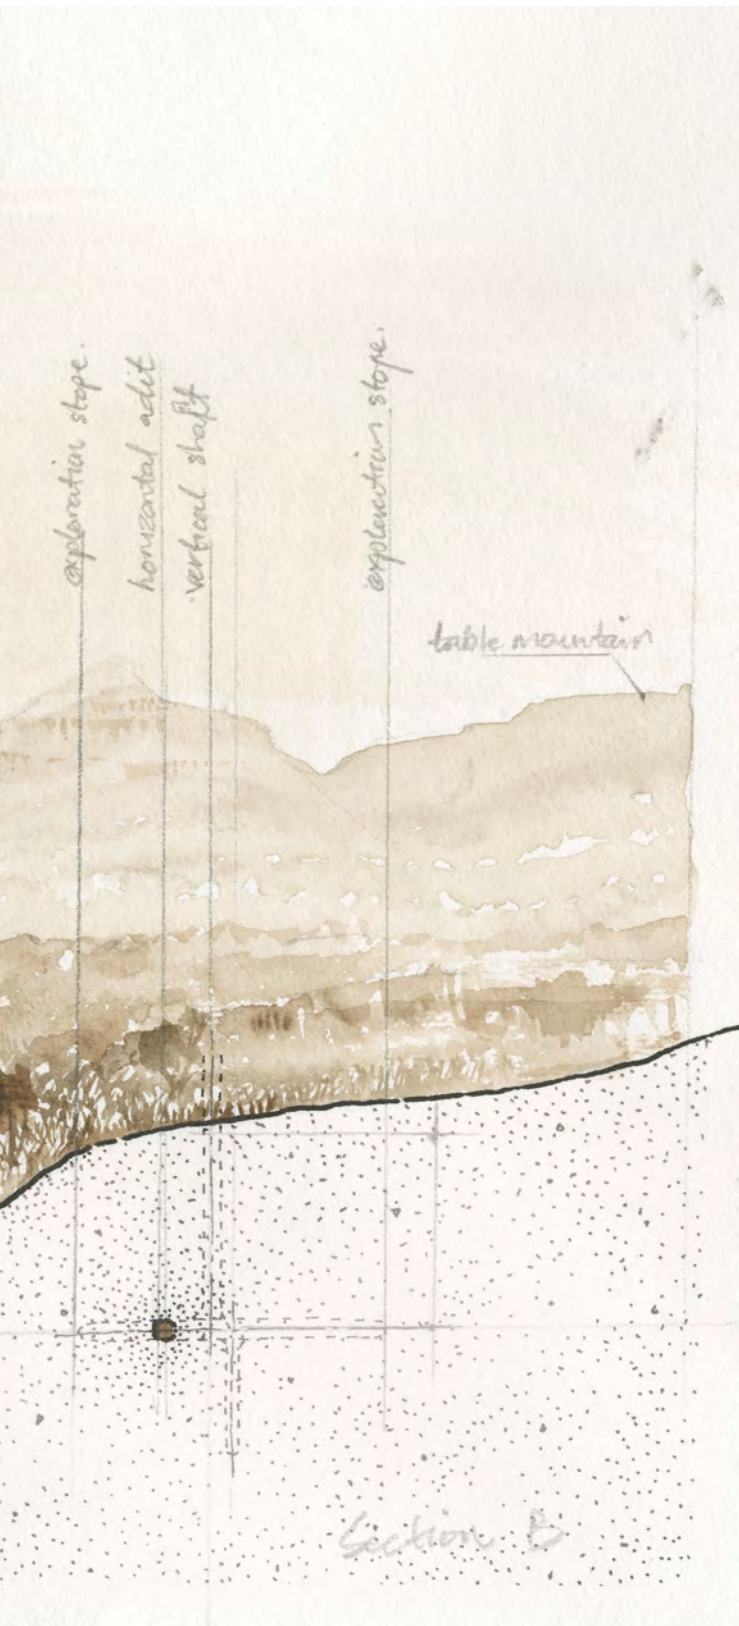 exploration stope.
horizontal adit
vertical shaft
exploration stope.
table mountain
Section B